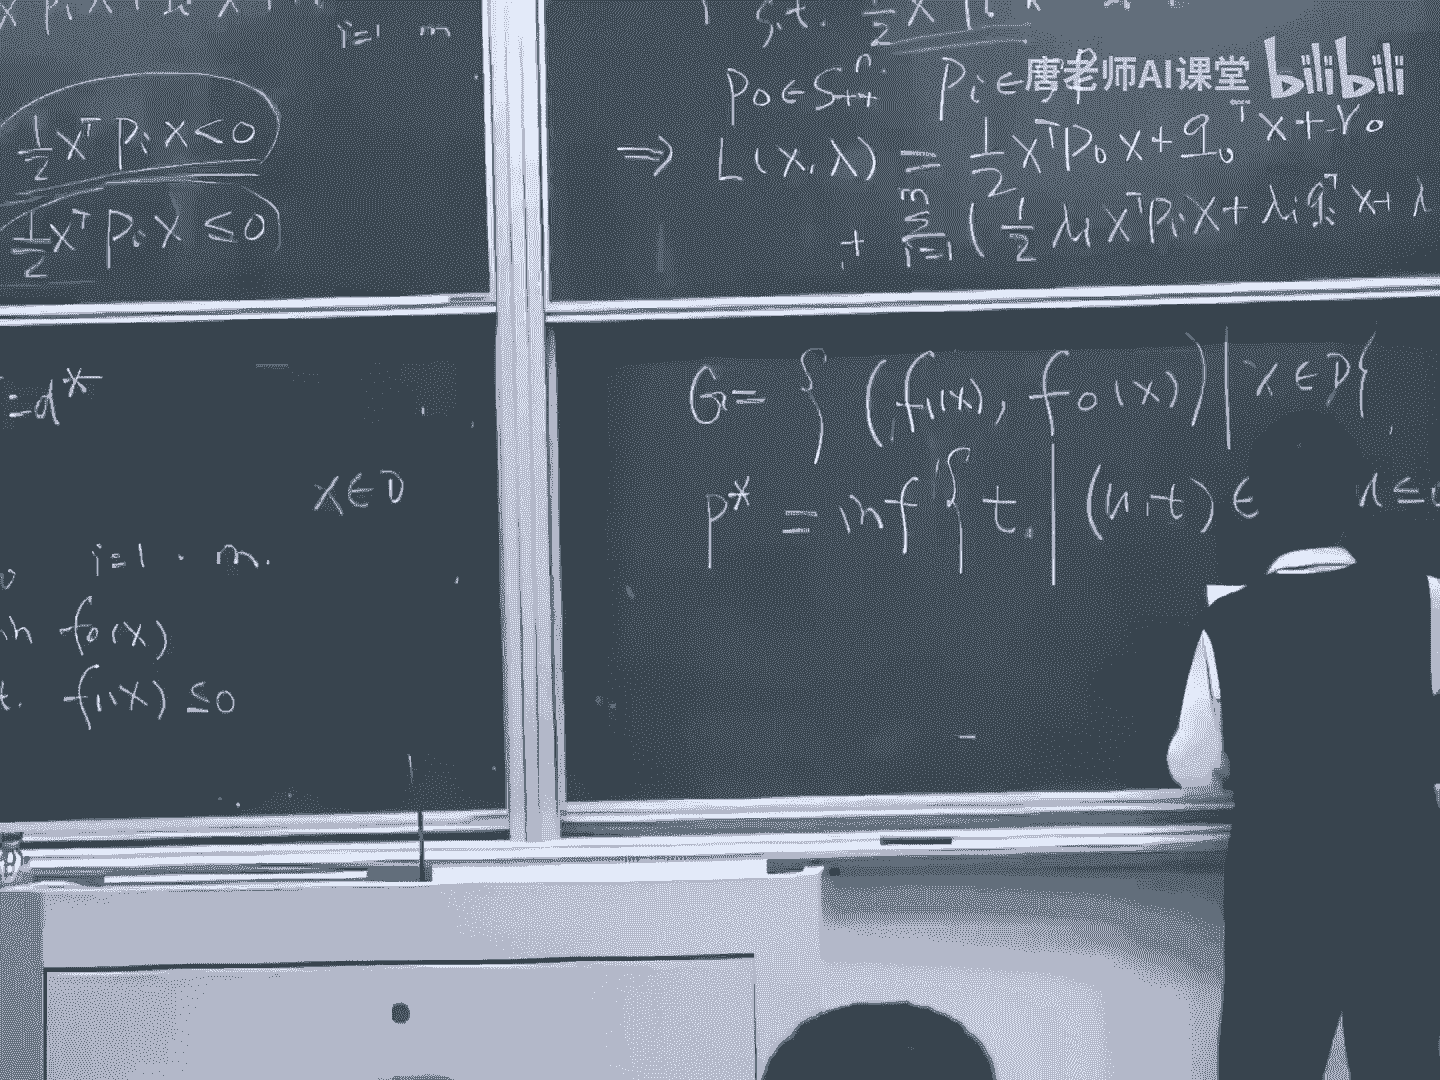 i=1 m
½xᵀPᵢx<0
½xᵀPᵢx≤0
=d*
x∈D
i=1 · m.
f₀(x)
f₁(x)≤0
s.t. ½x
P₀∈Sⁿ₊₊ Pᵢ∈
唐老师AI课堂 bilibili
⇒ L(x,λ) = ½xᵀP₀x+q₀ᵀx+r₀
+ Σᵢ₌₁ᵐ (½λᵢxᵀPᵢx+λᵢqᵢᵀx+λ
G={(f₁(x), f₀(x))|x∈D}
P* = inf{t|(u,t)∈ u≤0